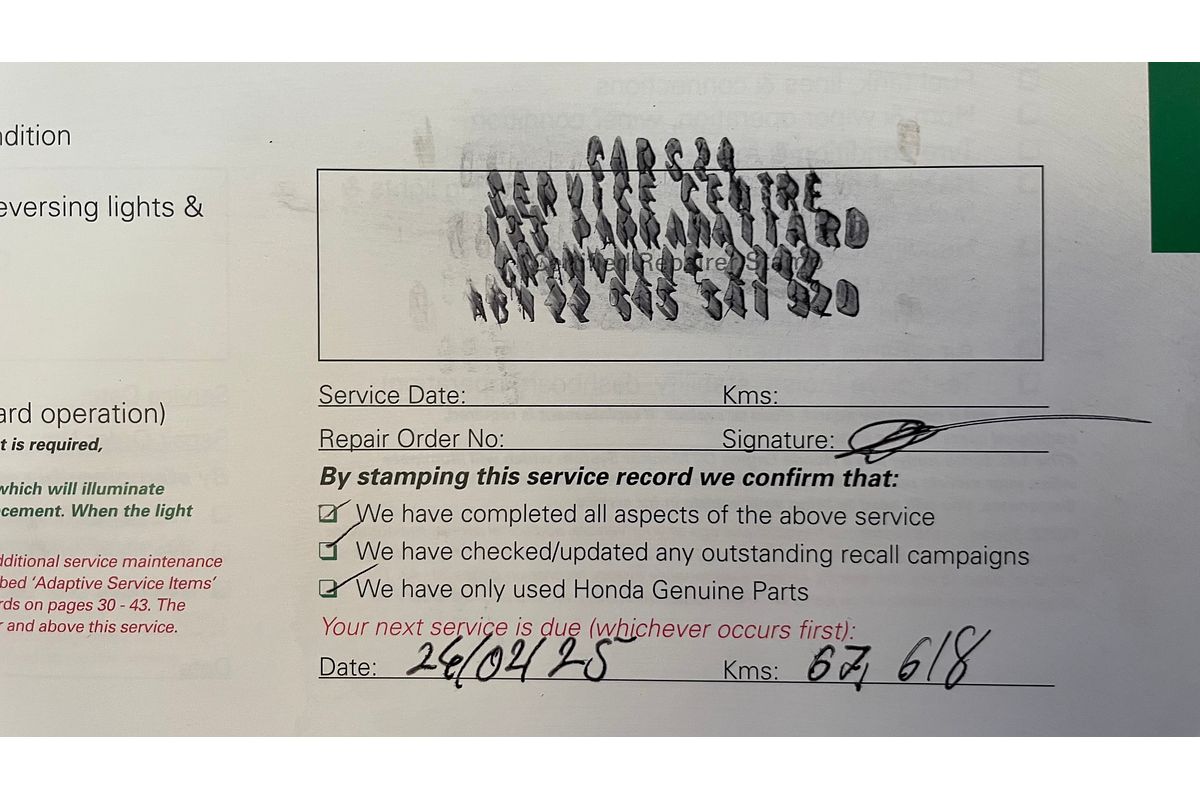 ndition
eversing lights &
ard operation)
t is required,
which will illuminate
cement. When the light
dditional service maintenance
bed ‘Adaptive Service Items’
rds on pages 30 - 43. The
r and above this service.
CARS24
SERVICE CENTRE
PARRAMATTA RD
Certified Repairer Stamp
ABN 22 645 341 920
Service Date: Kms:
Repair Order No: Signature:
By stamping this service record we confirm that:
We have completed all aspects of the above service
We have checked/updated any outstanding recall campaigns
We have only used Honda Genuine Parts
Your next service is due (whichever occurs first):
Date: 26/02/25 Kms: 67,618